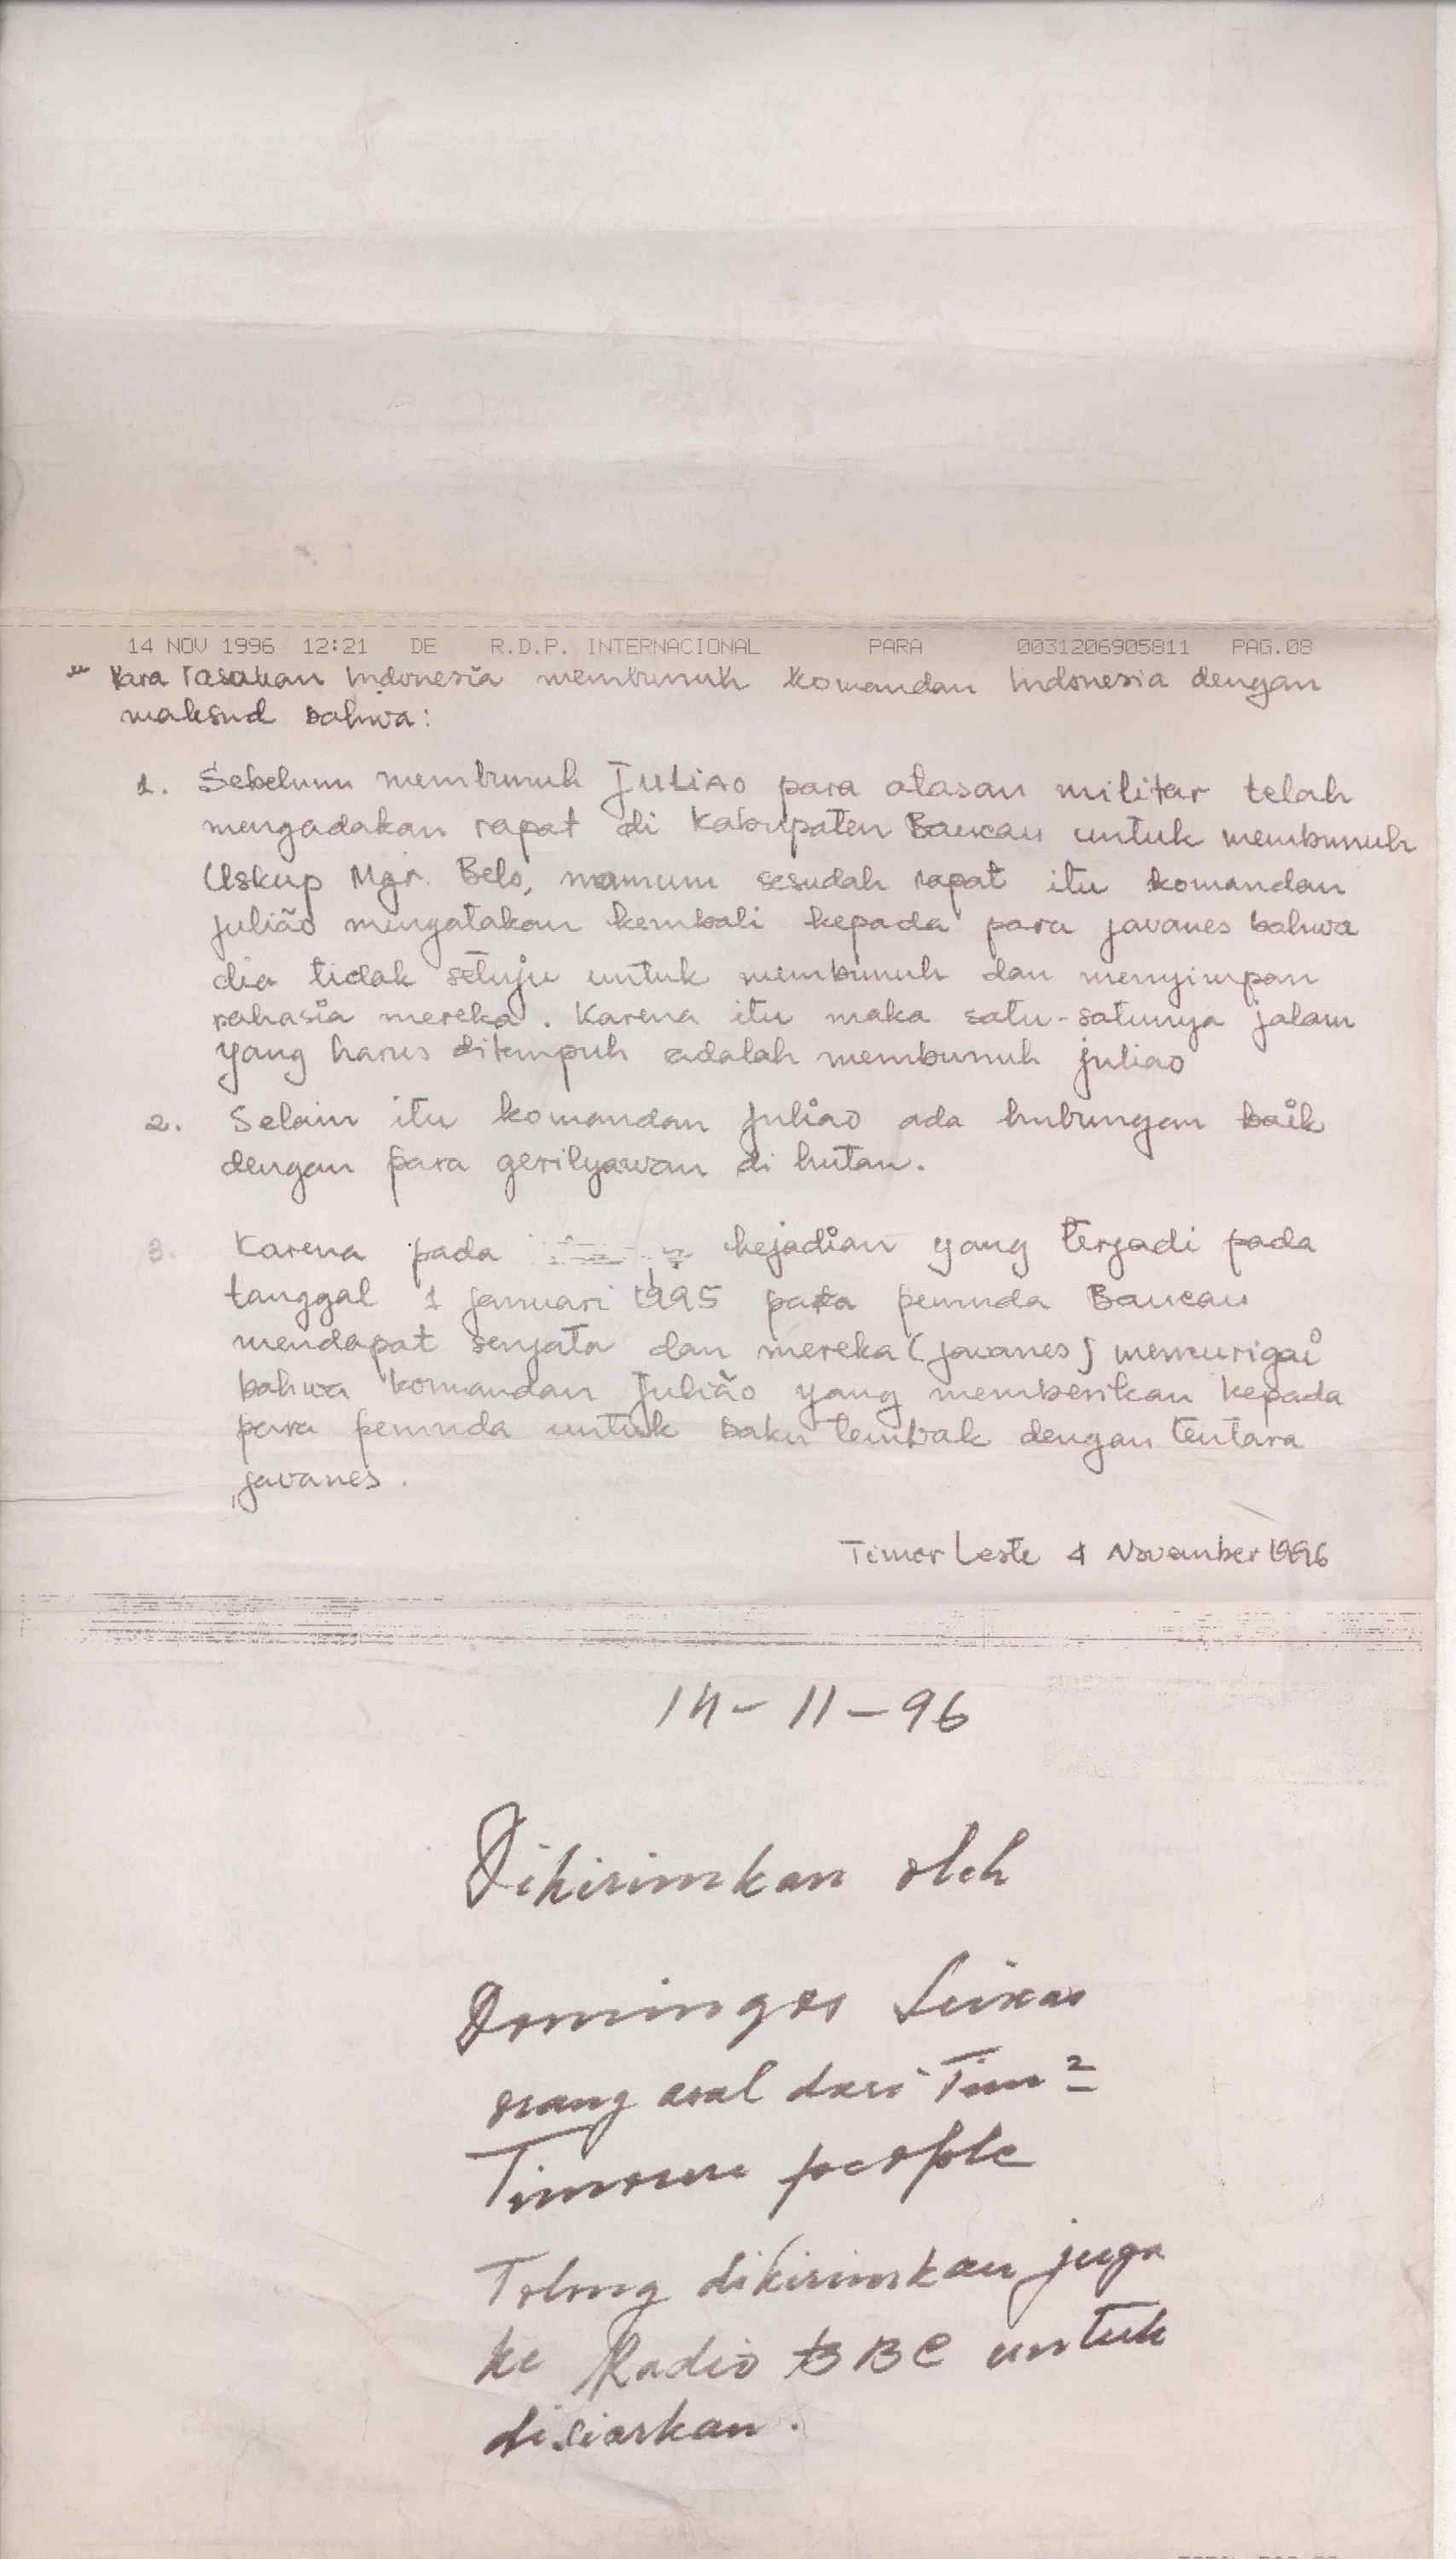 14 NOV 1996 12:21 DE R.D.P. INTERNACIONAL PARA 0031206905811 PAG.08
Para Pasukan Indonesia membunuh komandan Indonesia dengan
maksud bahwa:
1. Sebelum membunuh Juliao para atasan militar telah
mengadakan rapat di Kabupaten Baucau untuk membunuh
Uskup Mgr. Belo, mamum sesudah rapat itu komandan
Julião mengatakan kembali kepada para javanes bahwa
dia tidak setuju untuk membunuh dan menyimpan
rahasia mereka. Karena itu maka satu-satunya jalam
yang harus ditempuh adalah membunuh juliao
2. Selain itu komandan juliao ada hubungan baik
dengan para gerilyawan di hutan.
3. Karena pada kejadian yang terjadi pada
tanggal 1 januari 1995 para pemuda Baucau
mendapat senjata dan mereka (javanes) memurigai
bahwa komandan Julião yang memberikan kepada
para pemuda untuk baku tembak dengan tentara
javanes.
Timor Leste 4 November 1996
14-11-96
Dikirimkan oleh
Domingos Seixas
orang asal dari Tim²
Timorese people
Tolong dikirimkan juga
ke Radio BBC untuk
disiarkan.